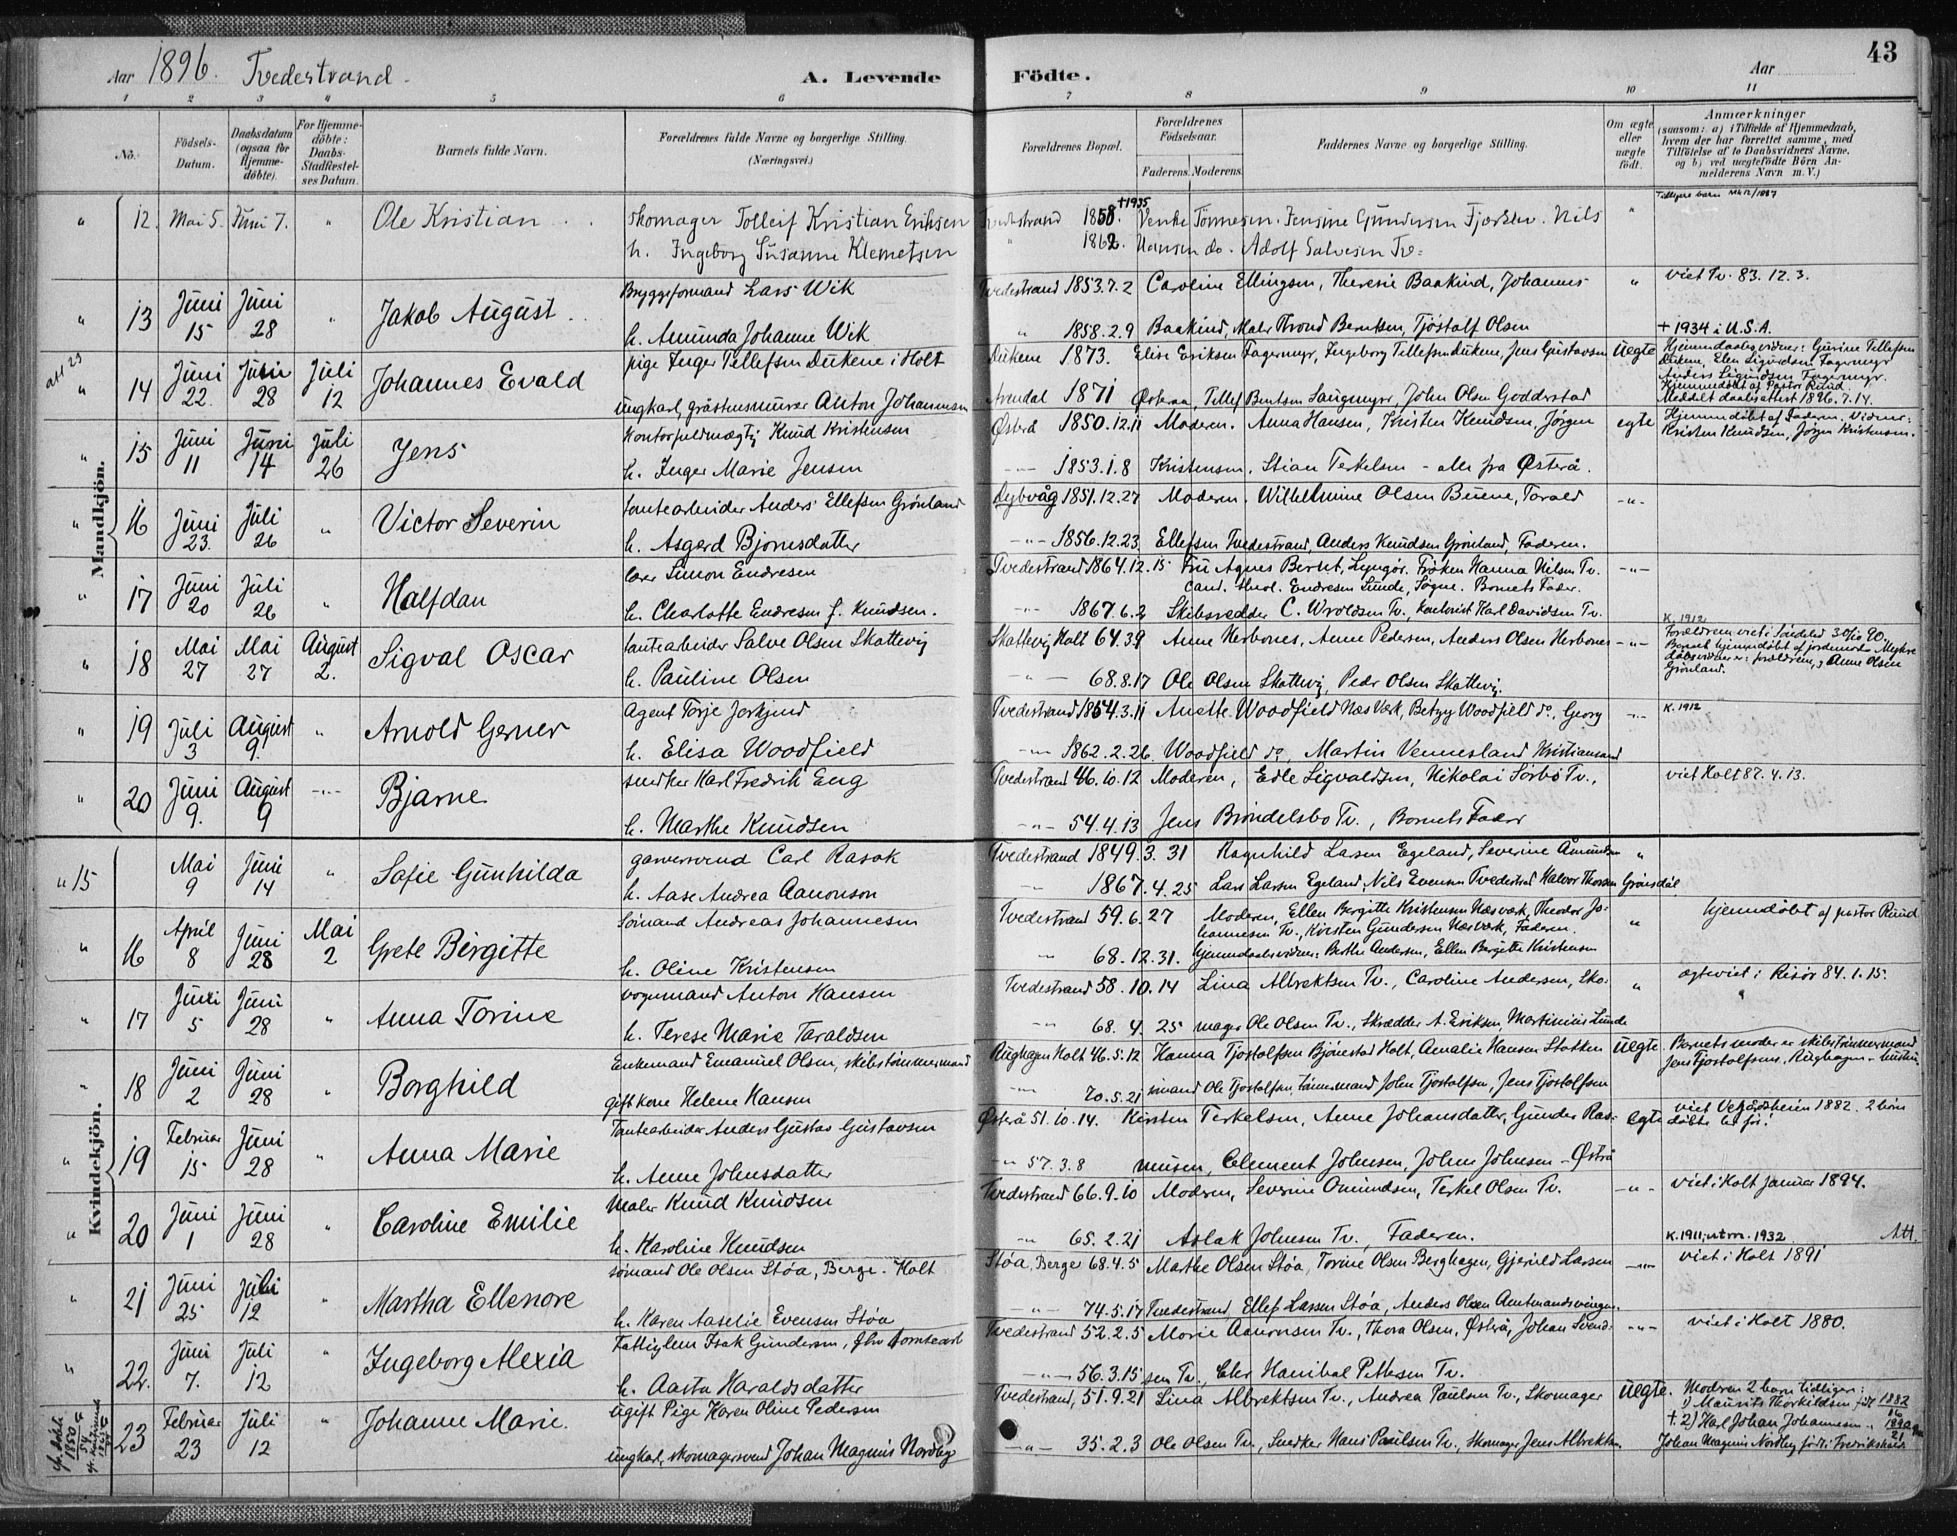 43
Aar 1896. Tvedestrand. A. Levende Födte. Aar
1 2 3 4 5 6 7 8 9 10 11
No. Födsels-Datum. Daabsdatum (ogsaa for Hjemme-döbte). For Hjemme-döbte: Daabs-Stadfæstel-ses Datum. Barnets fulde Navn. Forældrenes fulde Navne og borgerlige Stilling. (Næringsvei.) Forældrenes Bopæl. Forældrenes Födselsaar. Faderens. Moderens. Faddernes Navne og borgerlige Stilling. Om ægte eller uægte födt. Anmærkninger (saasom: a) i Tilfælde af Hjemmedaab, hvem der har forrettet samme, med Tilföielse af to Daabsvidners Navne, og b) ved uegtefödte Börn An-melderens Navn m. V.)
Mandkjön.
12. Mai 5. Juni 7. " Ole Kristian Skomager Tolleif Kristian Eriksen Tvedestrand 1858. +1935 Venke Tönnesen. Jensine Gundersen Fjærkleiv. Nils
h. Ingeborg Susanne Klemetsen " 1862. Hansen do. Adolf Salvesen Tv:
13 Juni 15 Juni 28 " Jakob August Bryggeformand Lars Wik Tvedestrand 1853.7.2 Caroline Ellingsen, Theresie Baakind, Johannes " viet Tv. 83.12.3.
h. Amunda Johanne Wik " 1858.2.9 Baakind, Maler Thrond Berntsen, Tjöstolf Olsen + 1934 i U.S.A.
att 29
14 Juni 22. Juni 28 Juli 12 Johannes Evald pige Inger Tellefsen Dukene i Holt Dukene 1873. Elise Eriksen Fagermyr, Ingeborg Tellefsen Dukene, Jens Gustavsen Uegte Hjemmedaabsvidner: Gurine Tellefsen
Dukene, Elen Sigurdsen Fagermyr
Anders Sigurdsen Fagermyr.
Hjemmedöbt af Pastor Ruud.
ungkarl, gråstensmurer Anton Johannesen Arndal 1871 Østeraa, Tellef Berntsen Laugmyr, John Olsen Godderstad Meddelt daabsattest 1896.7.14.
15 Juni 11 Juni 14 Juli 26 Jens Kontorfuldmægtig Knud Kristensen Østerå 1850.12.11 Moderen. Anna Hansen, Kristen Knudsen, Jørgen egte Hjemmedöbt af Faderen. Vidner:
Kristen Knudsen, Jörgen Kristensen.
h. Inger Marie Jensen 1853.1.8 Kristensen, Stian Terkelsen - alle fra Østerå.
16 Juni 23. Juli 26 " Victor Severin tomtearbeider Anders Ellefsen Grønland Dybvåg 1851.12.27 Moderen. Wilhelmine Olsen Buene, Torald -"-
h. Asgerd Bjornsdatter -"- 1856.12.23. Ellefsen Tvedestrand, Anders Knudsen Grönland, Faderen.
17 Juni 20 Juli 26 " Halfdan lærer Simon Endresen Tvedestrand 1864.12.15 Fru Agnes Bernt, Lyngör. Fröken Hanna Nilsen Tv. -"-
cand. theol. Endresen Lunde, Søgne. Barnets Fader.
h. Charlotte Endresen f. Knudsen. -"- 1867.6.2 Skibsreder C. Wroldsen Tv., Kontorist Karl Davidsen Tv. K. 1912
18 Mai 27 Mai 27 August 2. Sigval Oscar tomtearbeider Salve Olsen Skattevig Skattevig Holt 64.3.9 Anne Herbones, Anne Pedersen, Anders Olsen Herbones -"- Forældrene viet i Söndeled 30/10 90.
Barnet hjemmedöbt af jordemoder Myhre
daabsvidner er: forældrene, & Anne Olsen
Grönland.
h. Pauline Olsen -"- 68.8.17 Ole Olsen Skattevig, Peder Olsen Skattevig.
19 Juli 3 August 9. " Arnold Gerner Agent Terje Jerkjend Tvedestrand 1854.3.11 Anette Woodfield Næs Værk, Betzy Woodfield do, Georg -"- K. 1912
h. Elisa Woodfield -"- 1862.2.26. Woodfield do, Martin Vennesland Kristiansand
20 Juni 9. August 9 -"- Bjarne snedker Karl Fredrik Eng Tvedestrand 46.10.12 Moderen, Edle Sigvaldsen, Nikolai Sörbö Tv., viet Holt 87.4.13.
h. Marthe Knudsen -"- 54.4.13 Jens Bröndelsbo Tv., Barnets Fader
Kvindekjön.
15 Mai 9 Juni 14 " Sofie Gunhilda garversvend Carl Rasok Tvedestrand 1849.3.31 Ragnhild Larsen Egeland, Severine Åmundsen "
h. Aase Andrea Aanonson -"- 1867.4.25 Lars Larsen Egeland, Nils Evensen Tvedestrand Halvor Thorsen Grönsdål
16 April 8 Juni 28 Mai 2 Grete Birgitte Sömand Andreas Johannesen Tvedestrand 59.6.27 Moderen, Ellen Bergitte Kristensen Næsværk, Theodor Jo-
hannesen Tv., Kirsten Gundersen Næsværk, Faderen. " hjemdöbt af pastor Ruud
h. Oline Kristensen " 68.12.31. hjemmedaabsvidner: Berthe Andersen, Ellen Birgitte Kristensen
17 Juni 5 Juni 28 " Anna Torine vognmand Anton Hansen Tvedestrand 58.10.14 Lina Albrektsen Tv., Caroline Andersen, Sko- " egteviet i Risør 84.1.15.
h. Terese Marie Taraldsen -"- 68.4.25 mager Ole Olsen Tv., Skrædder A. Eriksen, Martinius Lunde
18 Juni 2 Juni 28 " Borghild Enkemand Emanuel Olsen, skibstömmermand Rughagen Holt 46.5.12 Hanna Tjostolfsen Bjönestad Holt, Amalie Hansen Statten Uegte. Barnets moder er skibstömmermand
Jens Tjostolfsens, Rughagen - hustru.
gift kone Helene Hansen -"- 70.5.21 sömand Ole Tjostolfsen, tömmermand John Tjostolfsen, Jens Tjostolfsen
19 Februar 15 Juni 28 " Anna Marie Tomtearbeider Anders Gustav Gustavsen Østerå 51.10.14. Kirsten Terkelsen, Anne Johansdatter, Gunder Ras- egte viet Vegårdsheien 1882. 2 börn
döbte her för.
h. Anne Johnsdatter -"- 57.3.8 mussen, Clement Johnsen, John Johnsen - Østrå
20 Juni 1 Juni 28 " Caroline Emilie Maler Knud Knudsen Tvedestrand 66.9.10 Moderen, Severine Omundsen, Terkel Olsen Tv. -"- viet i Holt Januar 1894.
h. Karoline Knudsen " 65.2.21 Aslak Johnsen Tv., Faderen. K. 1911, utm. 1932. Att.
21 Juni 25 Juli 12 " Martha Ellenore sömand Ole Olsen Støa, Berge - Holt Støa, Berge 68.4.5 Marthe Olsen Støa, Torine Olsen Berghagen, Gjeruld Larsen -"- viet i Holt 1891
h. Karen Aaselie Evensen Støa -"- 74.5.17 Tvedestrand, Ellef Larsen Støa, Anders Olsen Amtmandsvingen.
22. Juni 7. Juli 12 " Ingeborg Alexia Fattiglem Isak Gundersen, Tvedestrand 52.2.5 Marie Aanonsen Tv., Thora Olsen, Østerå, Johan Svend- -"- viet i Holt 1880.
h. Aasta Haraldsdatter -"- 56.3.15 sen Tv., Chr. Hanibal Pettersen Tv.
23 Februar 23 Juli 12 " Johanne Marie. Ugift Pige Karen Oline Pedersen Tvedestrand, 51.9.21 Lina Albrektsen Tv., Andrea Paulsen Tv., Skomager Uegte. Moderen 2 barn tidligere:
1) Maurits Thorkildsen föd 1882
+ 2) Karl Johan Johannesen
ungkarl, skomagersvend Johan Magnus Nordby -"- 35.2.3 Ole Olsen Tv., Snedker Hans Paulsen Tv., Skomager Jens Albrektsen. Johan Magnus Nordby född i Fredrikshald